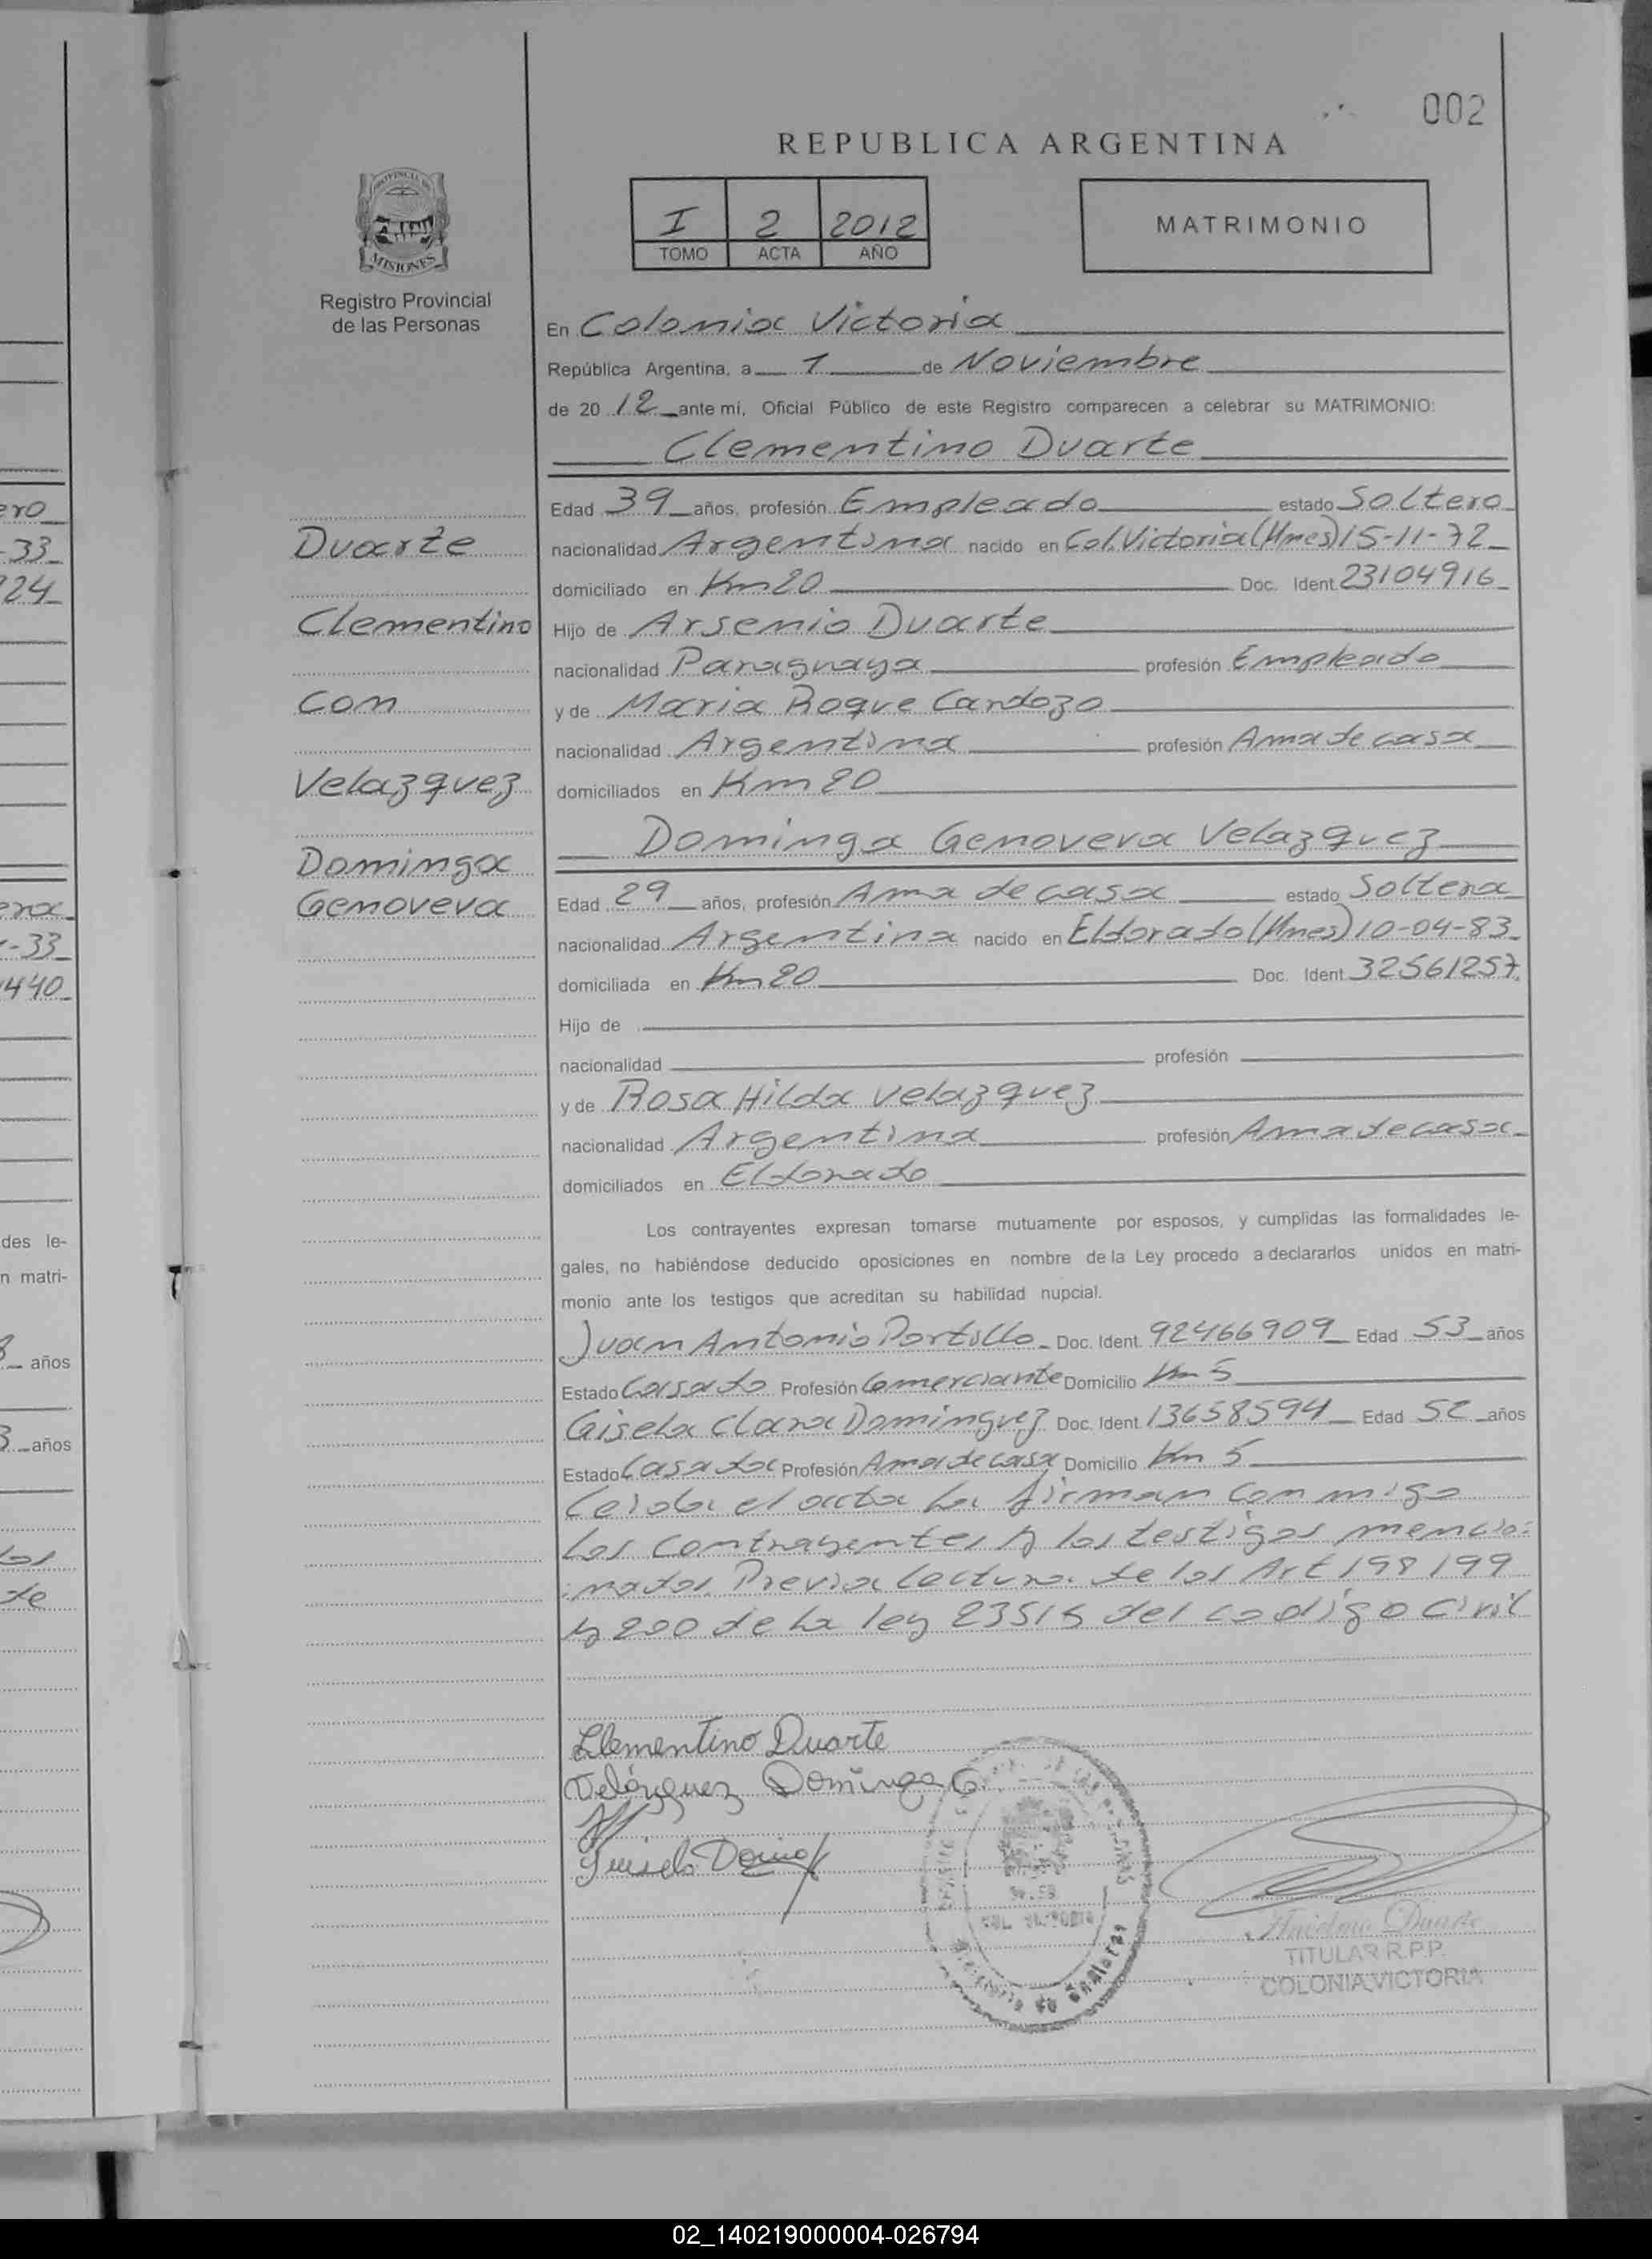 ero
33
924
era
-33
440
des le-
n matri-
años
años
los
de
PROVINCIA DE
MISIONES
Registro Provincial
de las Personas
Duarte
Clementino
con
Velazquez
Dominga
Genoveva
002
REPUBLICA ARGENTINA
I 2 2012
TOMO ACTA AÑO
MATRIMONIO
En Colonia Victoria
República Argentina, a 1 de Noviembre
de 20 12 ante mí, Oficial Público de este Registro comparecen a celebrar su MATRIMONIO:
Clementino Duarte
Edad 39 años, profesión Empleado estado Soltero
nacionalidad Argentina nacido en Col. Victoria (Mnes) 15-11-72
domiciliado en Km 20 Doc. Ident. 23104916
Hijo de Arsenio Duarte
nacionalidad Paraguaya profesión Empleado
y de Maria Roque Cardozo
nacionalidad Argentina profesión Ama de casa
domiciliados en Km 20
Dominga Genoveva Velazquez
Edad 29 años, profesión Ama de casa estado Soltera
nacionalidad Argentina nacido en Eldorado (Mnes) 10-04-83
domiciliada en Km 20 Doc. Ident 32561257
Hijo de
nacionalidad profesión
y de Rosa Hilda Velazquez
nacionalidad Argentina profesión Ama de casa
domiciliados en Eldorado
Los contrayentes expresan tomarse mutuamente por esposos, y cumplidas las formalidades le-
gales, no habiéndose deducido oposiciones en nombre de la Ley procedo a declararlos unidos en matri-
monio ante los testigos que acreditan su habilidad nupcial.
Juan Antonio Portillo Doc. Ident. 92466909 Edad 53 años
Estado Casado Profesión Comerciante Domicilio Km 5
Gisela Clara Dominguez Doc. Ident 13658594 Edad 52 años
Estado Casada Profesión Ama de casa Domicilio Km 5
Leida el acta la firman con migo
los contrayentes y los testigos mencio=
=nados. Previa lectura de los Art 198 199
y 200 de la ley 23515 del codigo Civil
Clementino Duarte
Velázquez Dominga G.
Gisela
COL VICTORIA
Duarte
TITULAR R.P.P.
COLONIA VICTORIA
02_140219000004-026794